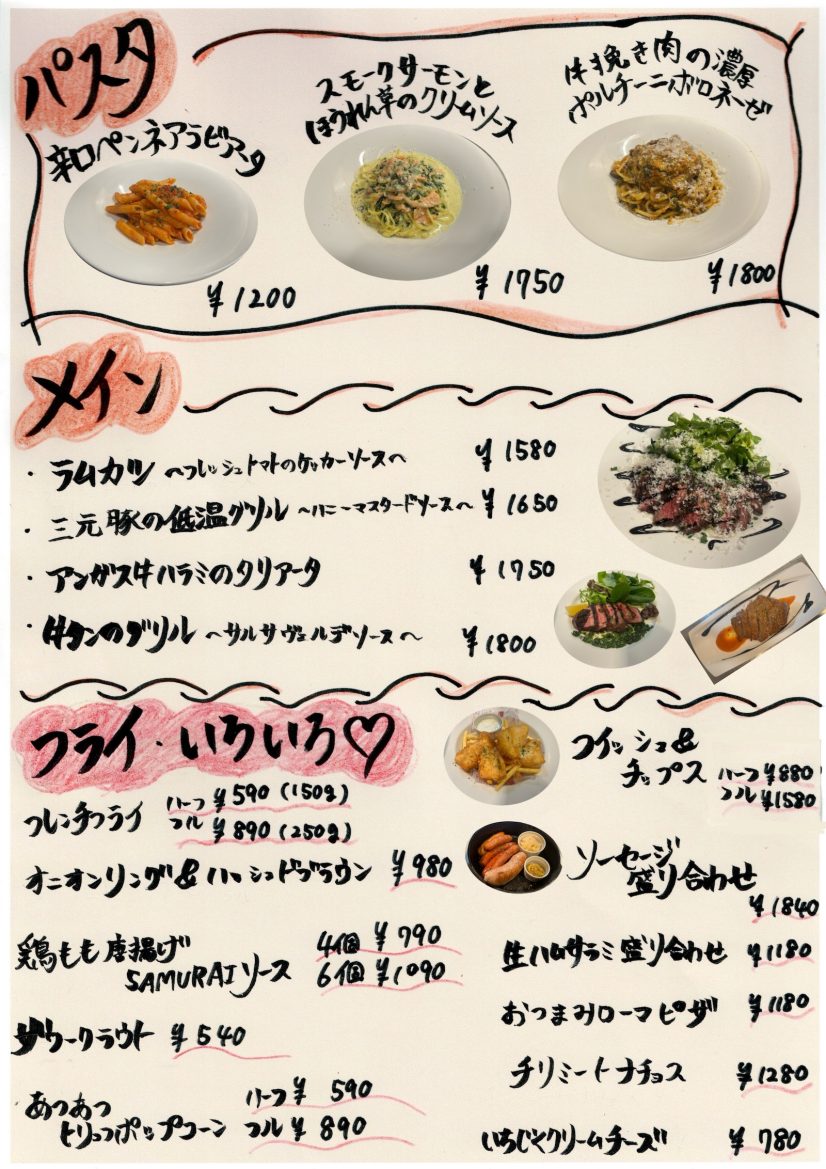 パスタ
辛口ペンネアラビアータ
¥1200
スモークサーモンと
ほうれん草のクリームソース
¥1750
牛挽き肉の濃厚
ポルチーニボロネーゼ
¥1800
メイン
・ラムカツ 〜フレッシュトマトのケッカーソース〜 ¥1580
・三元豚の低温グリル 〜ハニーマスタードソース〜 ¥1650
・アンガス牛ハラミのタリアータ ¥1750
・牛タンのグリル 〜サルサヴェルデソース〜 ¥1800
フライ・いろいろ♡
フレンチフライ ハーフ ¥590 (150g)
フル ¥890 (250g)
オニオンリング&ハッシュドブラウン ¥980
鶏もも唐揚げ
SAMURAIソース
4個 ¥790
6個 ¥1090
ザワークラウト ¥540
あつあつ
トリュフポップコーン
ハーフ ¥590
フル ¥890
フィッシュ&
チップス
ハーフ ¥880
フル ¥1580
ソーセージ
盛り合わせ
¥1840
生ハムサラミ盛り合わせ ¥1180
おつまみローマピザ ¥1180
チリミートナチョス ¥1280
いちじくクリームチーズ ¥780